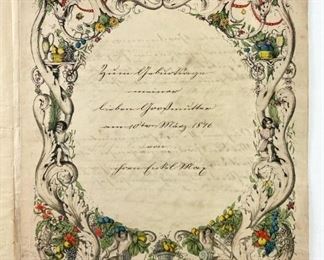 Zum Geburtstage
meiner
lieben Großmutter
am 10ten März 18
von
Max